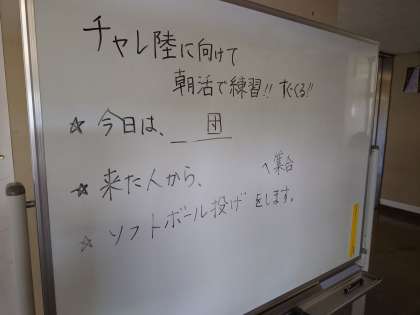 チャレ陸に向けて
朝活で練習!! すぐくる!!
☆ 今日は、 団
☆ 来た人から、 へ集合
☆ ソフトボール投げをします。